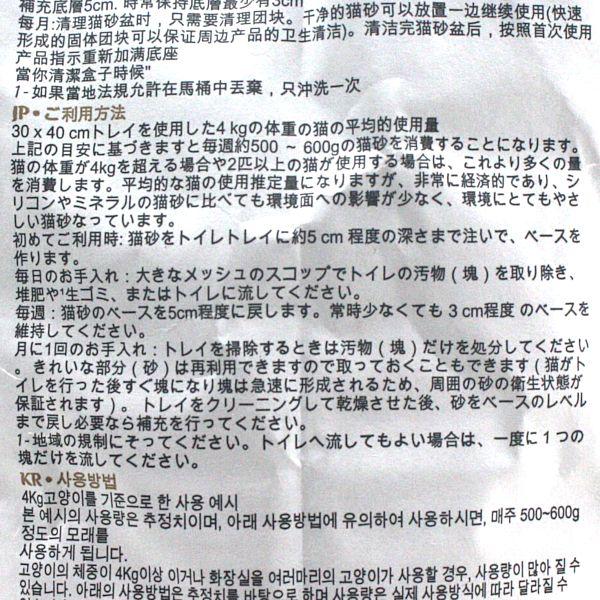 補充底層5cm. 時常保持底層最少有3cm
每月:清理猫砂盆时，只需要清理团块。干净的猫砂可以放置一边继续使用(快速
形成的固体团块可以保证周边产品的卫生清洁)。清洁完猫砂盆后，按照首次使用
产品指示重新加满底座
當你清潔盒子時候"
1-如果當地法規允許在馬桶中丟棄，只沖洗一次
JP・ご利用方法
30 x 40 cmトレイを使用した4 kgの体重の猫の平均的使用量
上記の目安に基づきますと毎週約500 ~ 600gの猫砂を消費することになります。
猫の体重が4kgを超える場合や2匹以上の猫が使用する場合は、これより多くの量
を消費します。平均的な猫の使用推定量になりますが、非常に経済的であり、シ
リコンやミネラルの猫砂に比べても環境面への影響が少なく、環境にとてもやさ
しい猫砂なっています。
初めてご利用時: 猫砂をトイレトレイに約5 cm 程度の深さまで注いで、ベースを
作ります。
毎日のお手入れ：大きなメッシュのスコップでトイレの汚物（塊）を取り除き、
堆肥や¹生ゴミ、またはトイレに流してください。
毎週：猫砂のベースを5cm程度に戻します。常時少なくても 3 cm程度 のベースを
維持してください。
月に1回のお手入れ：トレイを掃除するときは汚物（塊）だけを処分してください
。きれいな部分（砂）は再利用できますので取っておくこともできます（猫がト
イレを行った後すぐ塊になり塊は急速に形成されるため、周囲の砂の衛生状態が
保証されます）。トレイをクリーニングして乾燥させた後、砂をベースのレベル
まで戻し必要なら補充を行ってください。
1-地域の規制にそってください。トイレへ流してもよい場合は、一度に１つの
塊だけを流してください。
KR・사용방법
4Kg고양이를 기준으로 한 사용 예시
본 예시의 사용량은 추정치이며, 아래 사용방법에 유의하여 사용하시면, 매주 500~600g
정도의 모래를
사용하게 됩니다.
고양이의 체중이 4Kg이상 이거나 화장실을 여러마리의 고양이가 사용할 경우, 사용량이 많아 질 수
있습니다. 아래의 사용방법은 추정치를 바탕으로 하며 사용량은 실제 사용방식에 따라 달라질 수